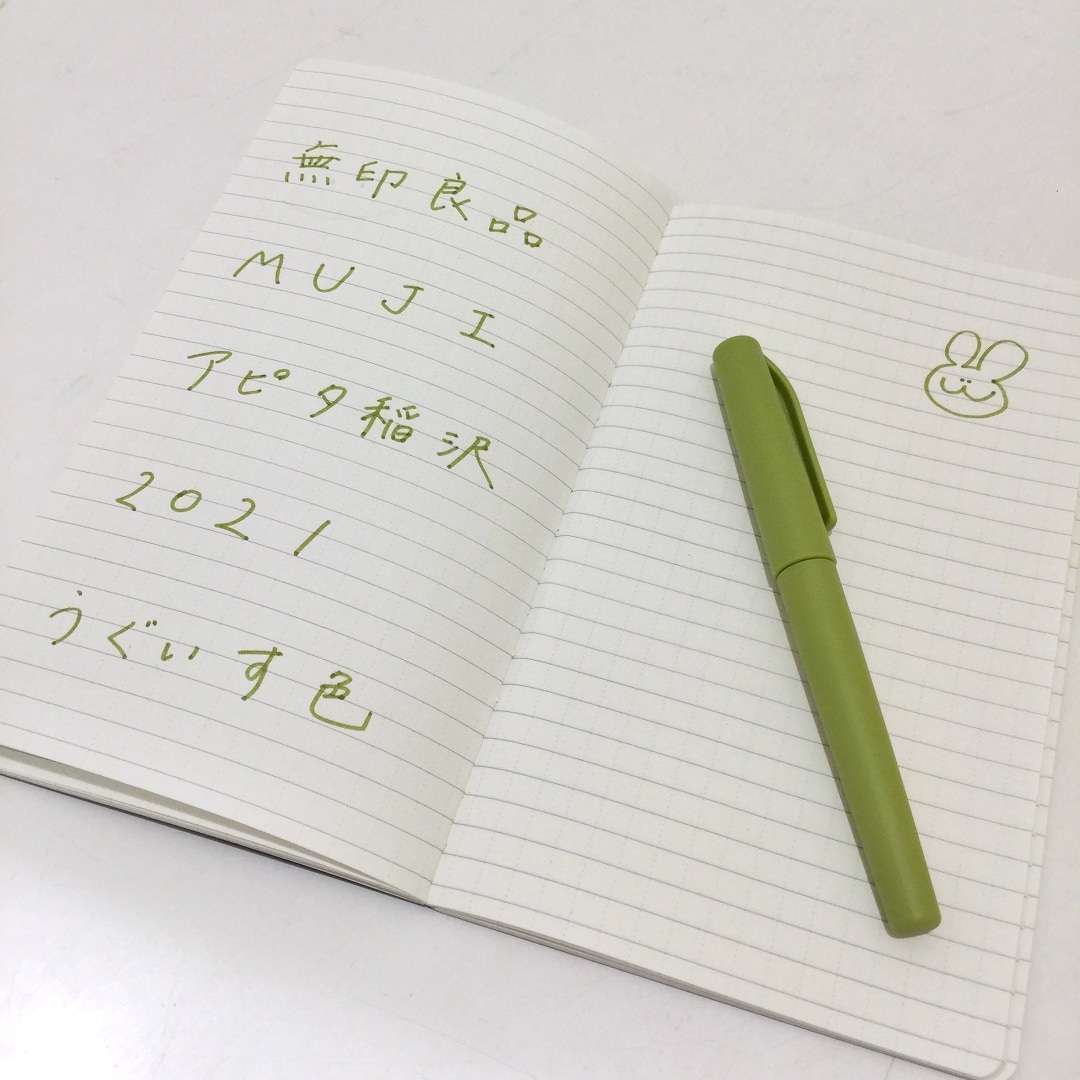 無印良品
MUJI
アピタ稲沢
2021
うぐいす色